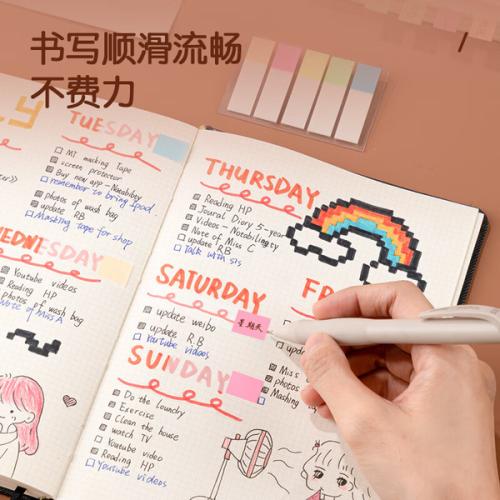 书写顺滑流畅
不费力
LY
TUESDAY
MT masking Tape
screen protector
Buy new app - Notability
remember to bring food
photos of wash bag
update RB
Masking tape for shop
WEDNESDAY
Youtube videos
Reading HP
photos of wash bag
Note of Miss A
THURSDAY
Reading HP
Joural Diary 5-year
Videos - Notabilingty
Note of Miss C
update RB
Talk with sis
SATURDAY
update weibo
星期天
update R.B
Youtube videos
FR
upd
Miss
photos
Mashing
SUNDAY
Do the loundry
Exercise
Clean the house
watch TV
Youtube video
Reading HP
Youtube videos